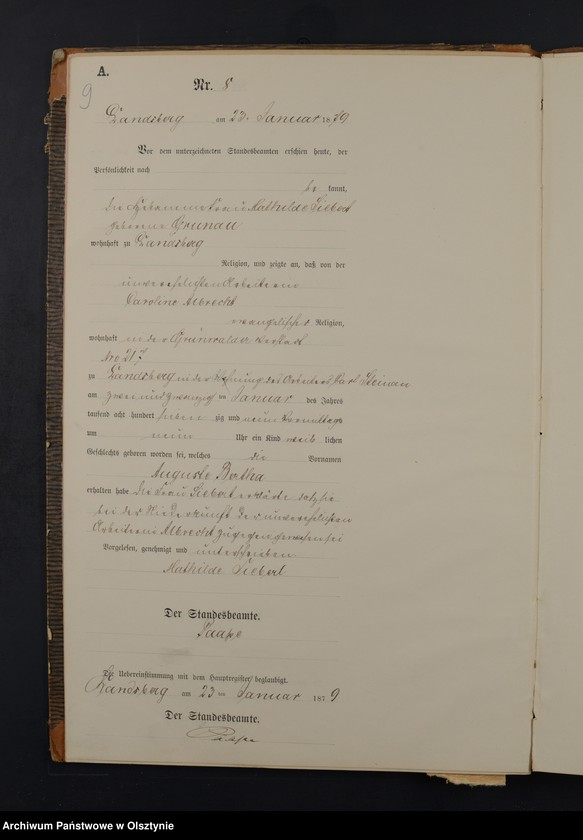 A.
9
Nr. 8
Landsberg am 23. Januar 1879
Vor dem unterzeichneten Standesbeamten erschien heute, der
Persönlichkeit nach
be kannt,
die Hebamme Frau Mathilde Siebert
geborene Grunau
wohnhaft zu Landsberg
Religion, und zeigte an, daß von der
unverehelichten Arbeiterin
Caroline Albrecht
evangelischer Religion,
wohnhaft in der Grünwalder Vorstadt
Nro 217
zu Landsberg in der Wohnung des Arbeiters Carl
am zwei und zwanzig ten Januar des Jahres
tausend acht hundert sieben zig und neun Vormittags
um neun Uhr ein Kind weib lichen
Geschlechts geboren worden sei, welches die Vornamen
Auguste Bertha
erhalten habe Die Frau Siebert erklärte daß sie
bei der Niederkunft der unverehelichten
Arbeiterin Albrecht zugegen gewesen sei
Vorgelesen, genehmigt und unterschrieben
Mathilde Siebert
Der Standesbeamte.
Paape
Die Uebereinstimmung mit dem Hauptregister beglaubigt.
Landsberg am 23 ten Januar 1879
Der Standesbeamte.
Paape
Archiwum Państwowe w Olsztynie